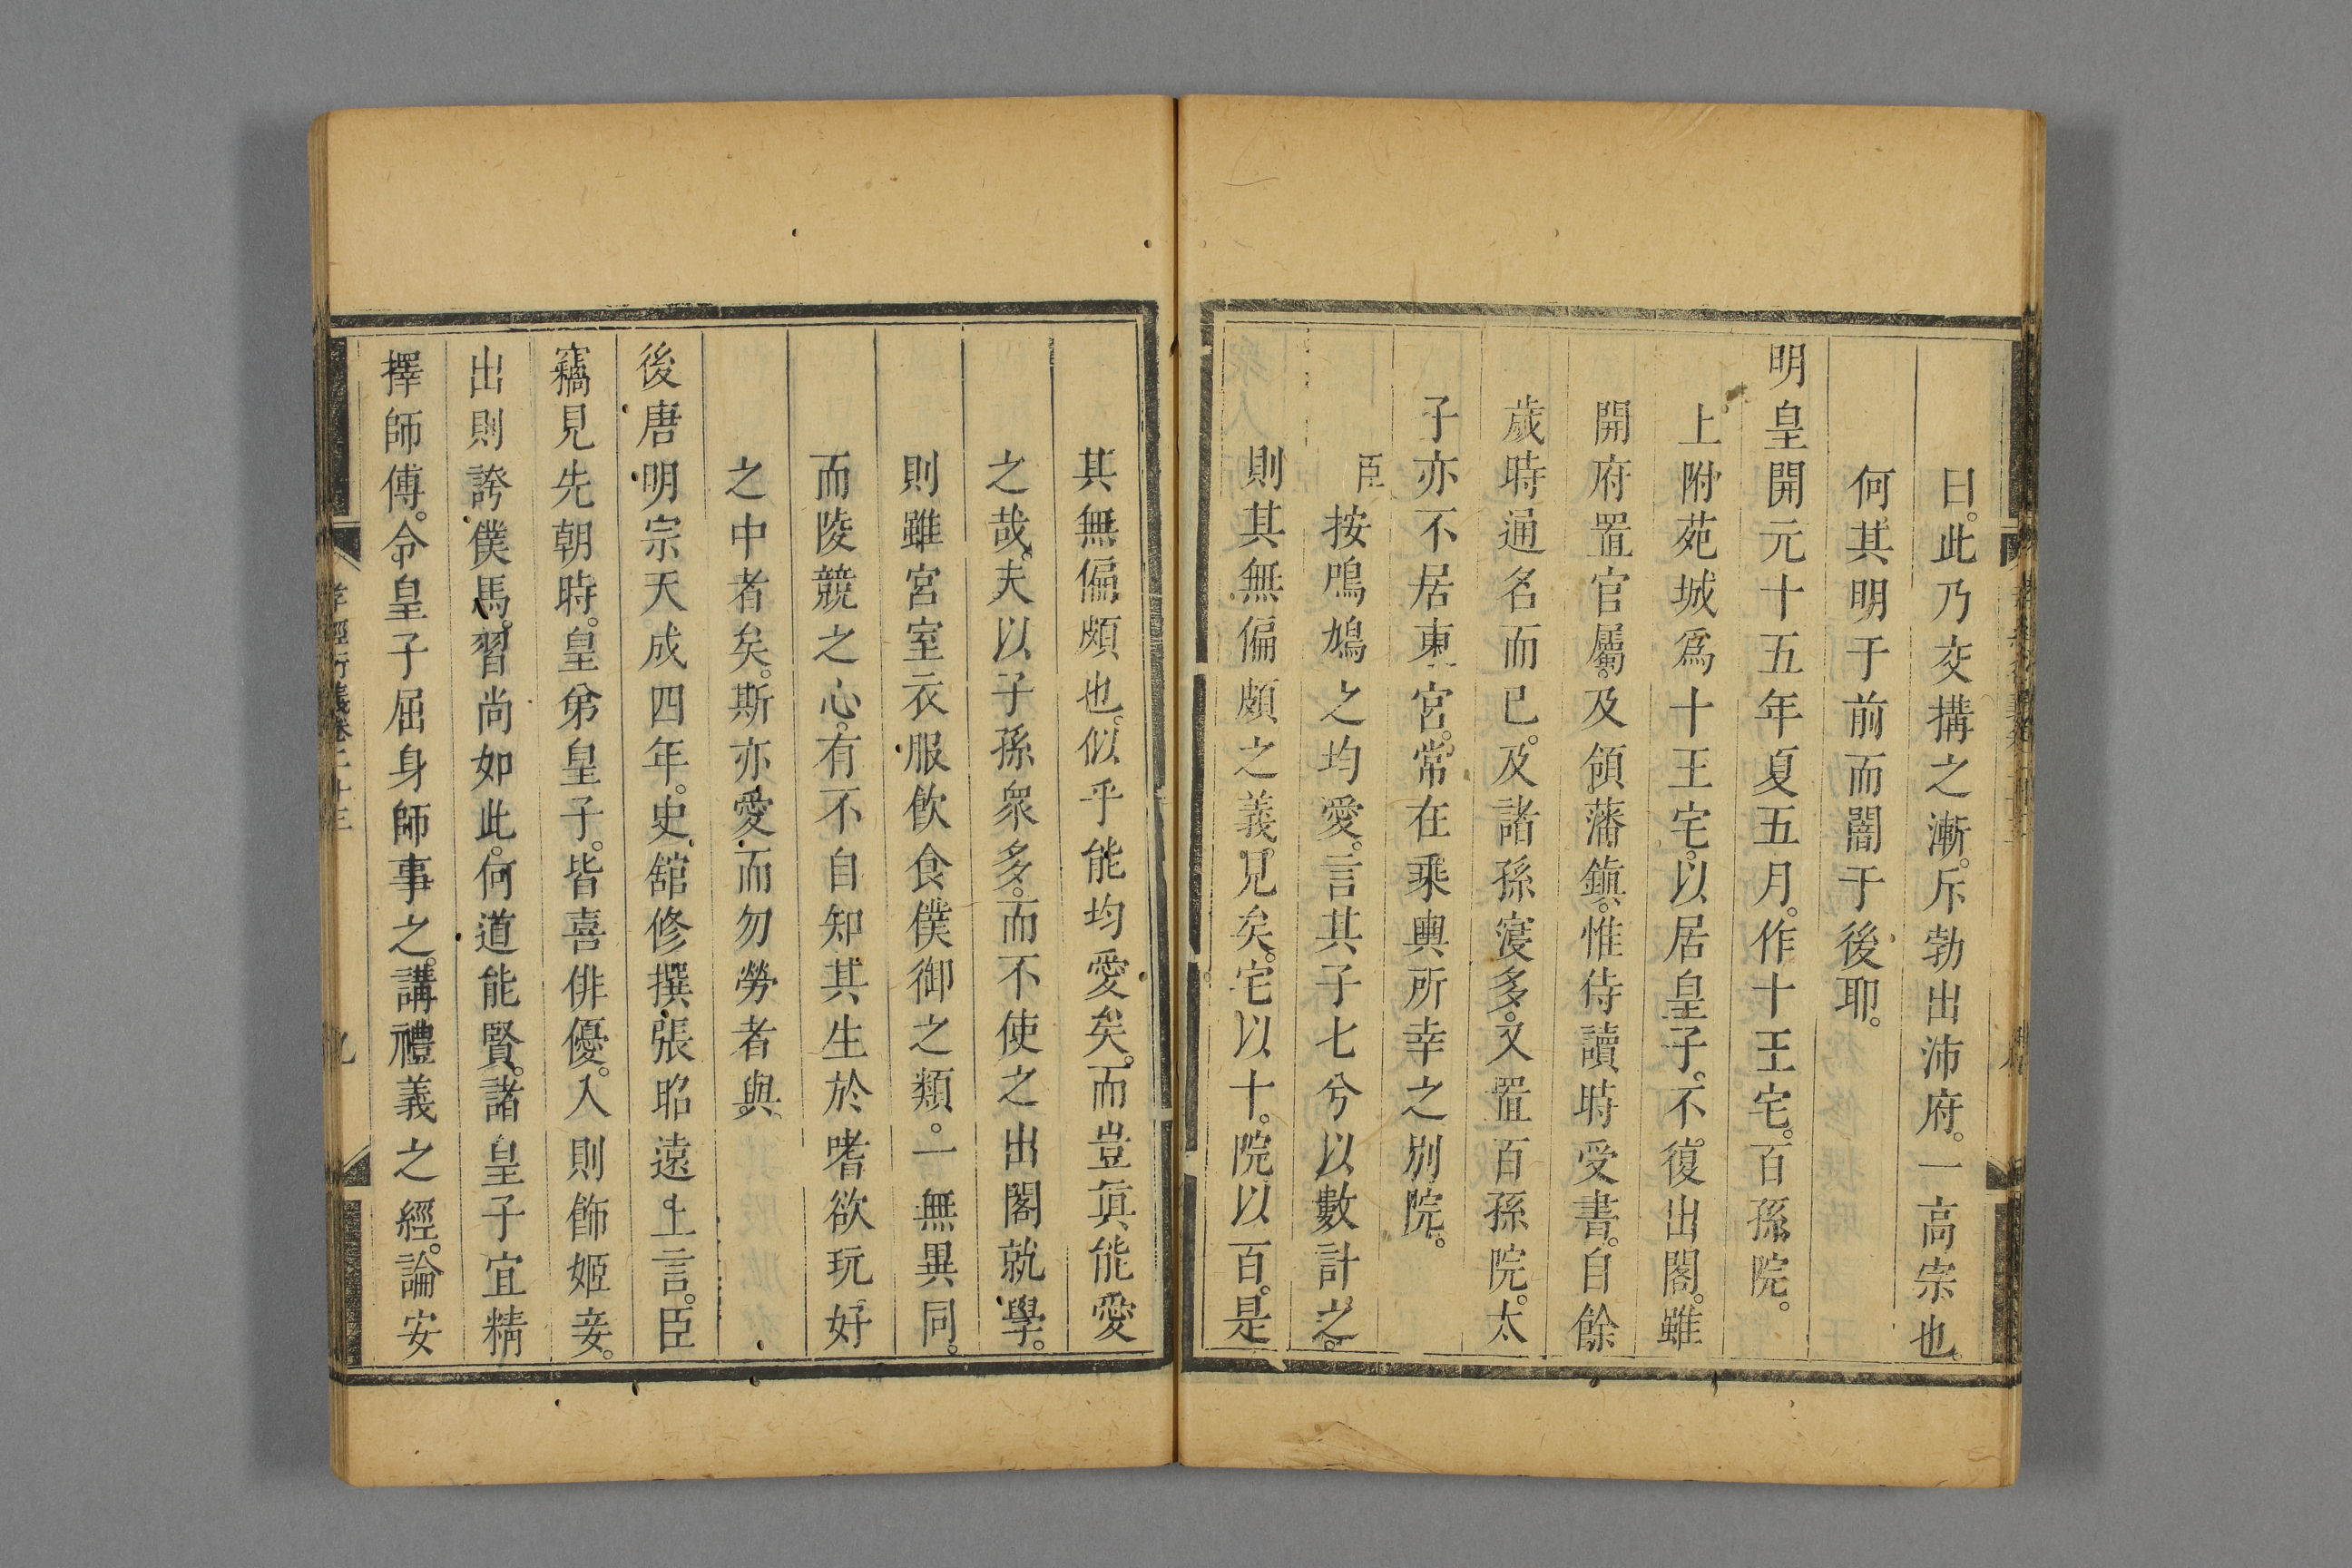 曰。此乃交搆之漸。斥勃出沛府。一高宗也。
何其明于前而闇于後耶。
明皇開元十五年夏五月。作十王宅。百孫院。
上附苑城爲十王宅。以居皇子。不復出閣。雖
開府置官屬。及領藩鎭。惟侍讀時受書。自餘
歲時通名而已。及諸孫寖多。又置百孫院。太
子亦不居東宮。常在乘輿所幸之別院。
臣按鳲鳩之均愛。言其子七兮以數計之。
則其無偏頗之義。見矣。宅以十。院以百。是
其無偏頗也。似乎能均愛矣。而豈眞能愛
之哉。夫以子孫衆多。而不使之出閣就學。
則雖宮室衣服飮食僕御之類。一無異同。
而陵競之心。有不自知其生於嗜欲玩好
之中者矣。斯亦愛而勿勞者與。
後唐明宗天成四年。史舘修撰張昭遠上言。臣
竊見先朝時。皇弟皇子。皆喜俳優。入則飾姬妾。
出則誇僕馬。習尚如此。何道能賢。諸皇子宜精
擇師傅。令皇子屈身師事之。講禮義之經。論安
孝經衍義卷二十三
九